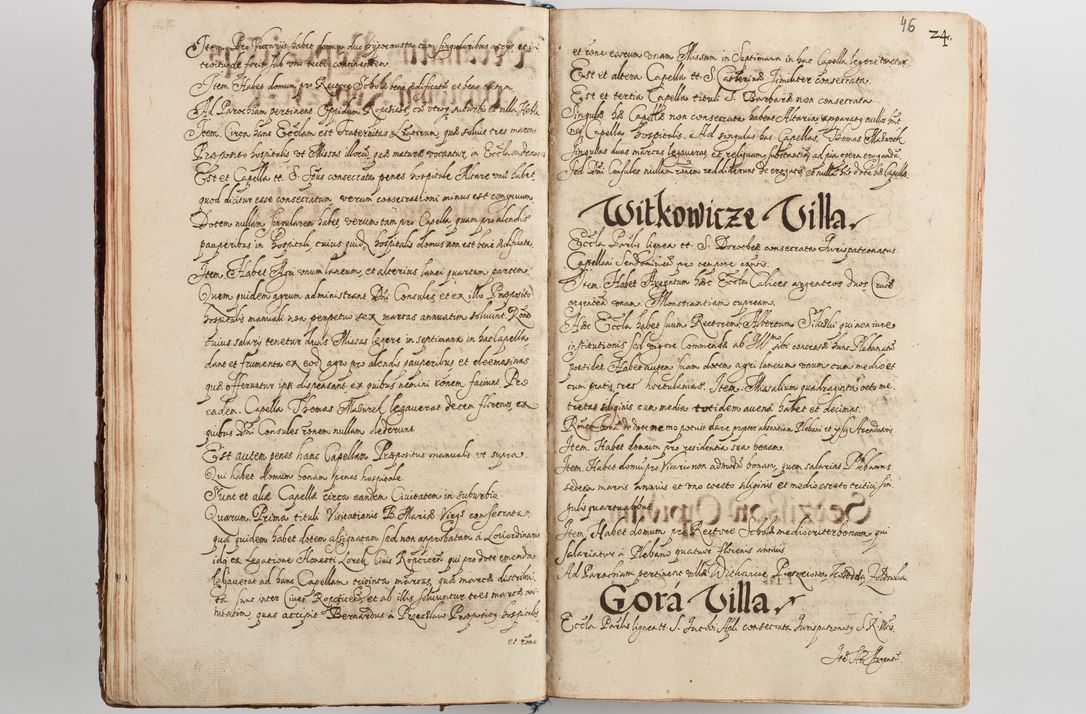 Item Pro Vicarijs habet domum duo hypocausta cum singularibus
sub uno tecto continentem
Item Habet domum pro Rectore Scholæ bene ædificatam et beneextructam
Ad Parochiam pertinent Oppidum Ropcice cum utroq suburbio et nulla
Item Circa hanc Ecclam est fraternitas quæ soluit tres marcas
Præposito hospitalis ut Missas illorum quæ maturæ vocantur, in Ecclia
Est et Capella tt. S. Spus consecrata penes hospitale Altare unu habet,
quod dicitur esse consecratum, verum consecrationi minus est congruum
Dotem nullam singularem habet, verum tam pro Capella quam pro alendis
pauperibus in hospitali cuius quidem hospitalis domus non est bene ædificata.
Item Habet Agri unum laneum, et alterius lanei quartam partem
Quem quidem agrum administrant Dni Consules et ex illo Præposito
hospitalis manuali non perpetuo sex marcas annuatim soluunt,
tuius salarij tenetur duas Missas legere in septimana in hac Capella
dant et frumenta ex eod agro pro alendis pauperibus et eleemosinas
quæ offeruntur ipsi dispensant ex quibus nemini ronem faciunt Pro
eadem Capella Thomas Mazurek legauerat decem florenos ex
quibus Dni Consules ronem nullam dederunt
Est autem penes hanc Capellam Præpositus manualis ut supra
Qui habet domum bonam penes hospitale.
Sunt et aliæ Capellæ circa eandem Ciuitatem in suburbio
Quarum Prima tituli Visitationis B. Mariæ Virgs consecrata
quæ quidem habet dotem assignatam sed non approbatam a Loci ordinario
ex Legatione Honesti Lorek Ciuis Ropcicen qui pro dote emenda
legauerat ad hanc Capellam triginta marcas, quæ marcæ distribu
tæ sunt inter Ciues Ropcicen et ab illis soluuntur tres marcæ
quas accipit Bernardus a Præposito hospitalis
et rone

46 24.
et rone earum unam Missam in septimana in hac Capella legere tenetur
Est et altera Capella tt. S. Catherinæ similiter consecrata
Est et tertia Capella tituli S. Barbaræ non consecrata
Singulæ hæ Capellæ non consecrata habent Altaria, apparatq nullus nisi
Capellæ hospitalis. Ad singulas has Capellas Thomas Mazurek
singulas duas marcas legauerat et reliquam substantiam ad pia opera erogandā
sed Dni Consules nullam ronem reddiderunt de erogatis et nulla dote hæ Capellæ
Witkowicze Villa
Eccla Parlis lignea tt. S. Dorotheæ consecrata Iurispatronatus
Castellani Sendomirien pro tempore exntis.
Item Habet Argentum hæc Eccla Calices argenteos duos Crucē
argenteā unam Monstrantiam cupream.
Hæc Eccla habet suum Rectorem Albertum qui non iure
institutionis sed vigore Commendæ ab Illmo concessæ hunc Plebanatū
possidet Habet autem suam dotem agri laneum unum cum medio et
cum pratis tres hortulanos. Item Missalium quadraginta octo me
tretas siliginis cum media totidem auenæ habet et decimas.
nemo potuit dare propter absentiam Plebani et Arendatoris
Item Habet domum pro residentia sua bonam.
Item Habet domū pro Vicario non admodū bonam, quem salariat Plebanus
sedecim marcis annuis et uno coreto siliginis et medio coreto tritici sin
gulis quartualibus
Item Habet domum pro Rectore Scholæ mediocriter bonam qui
salariatur a Plebano quatuor florenis annuis
Ad Parochiam pertinent villæ Witkowice
Gora Villa
Eccla Parlis lignea tt. S. Iacobi Apli consecrata Iurispatronatq S. R. Mtis.